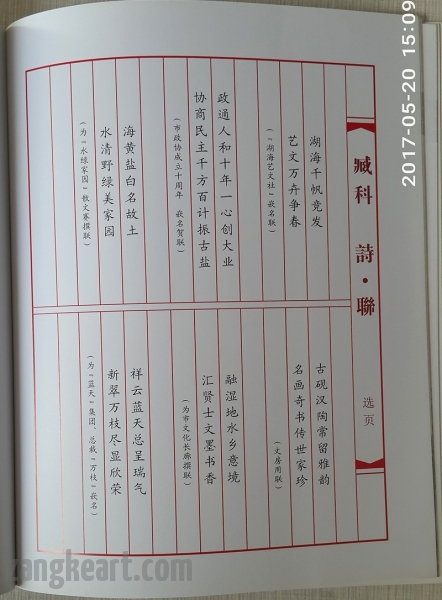 2017-05-20 15:09
臧科 詩·聯
选页
湖海千帆竞发
艺文万卉争春
（“湖海艺文社”嵌名联）
政通人和十年一心创大业
协商民主千方百计振古盐
（市政协成立十周年 嵌名贺联）
海黄盐白名故土
水清野绿美家园
（为“水绿家园”散文赛撰联）
古砚汉陶常留雅韵
名画奇书传世家珍
（文房用联）
融湿地水乡意境
汇贤士文墨书香
（为市文化长廊撰联）
祥云蓝天总呈瑞气
新翠万枝尽显欣荣
（为“蓝天”集团、总裁“万枝”嵌名）
angkeart.com